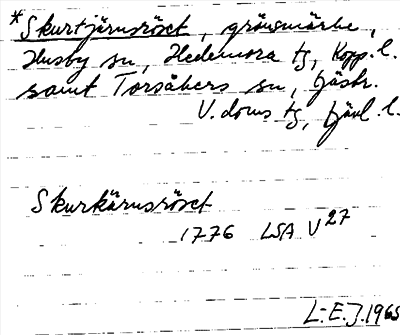 *Skurtjärnsröset, gränsmärke,
Husby sn, Hedemora tg, Kopp. l.
samt Torsåkers sn, Gästr.
V. doms tg, Gävl. l.
Skurkärnsröset
1776 LSA V27
L.E.J. 1965